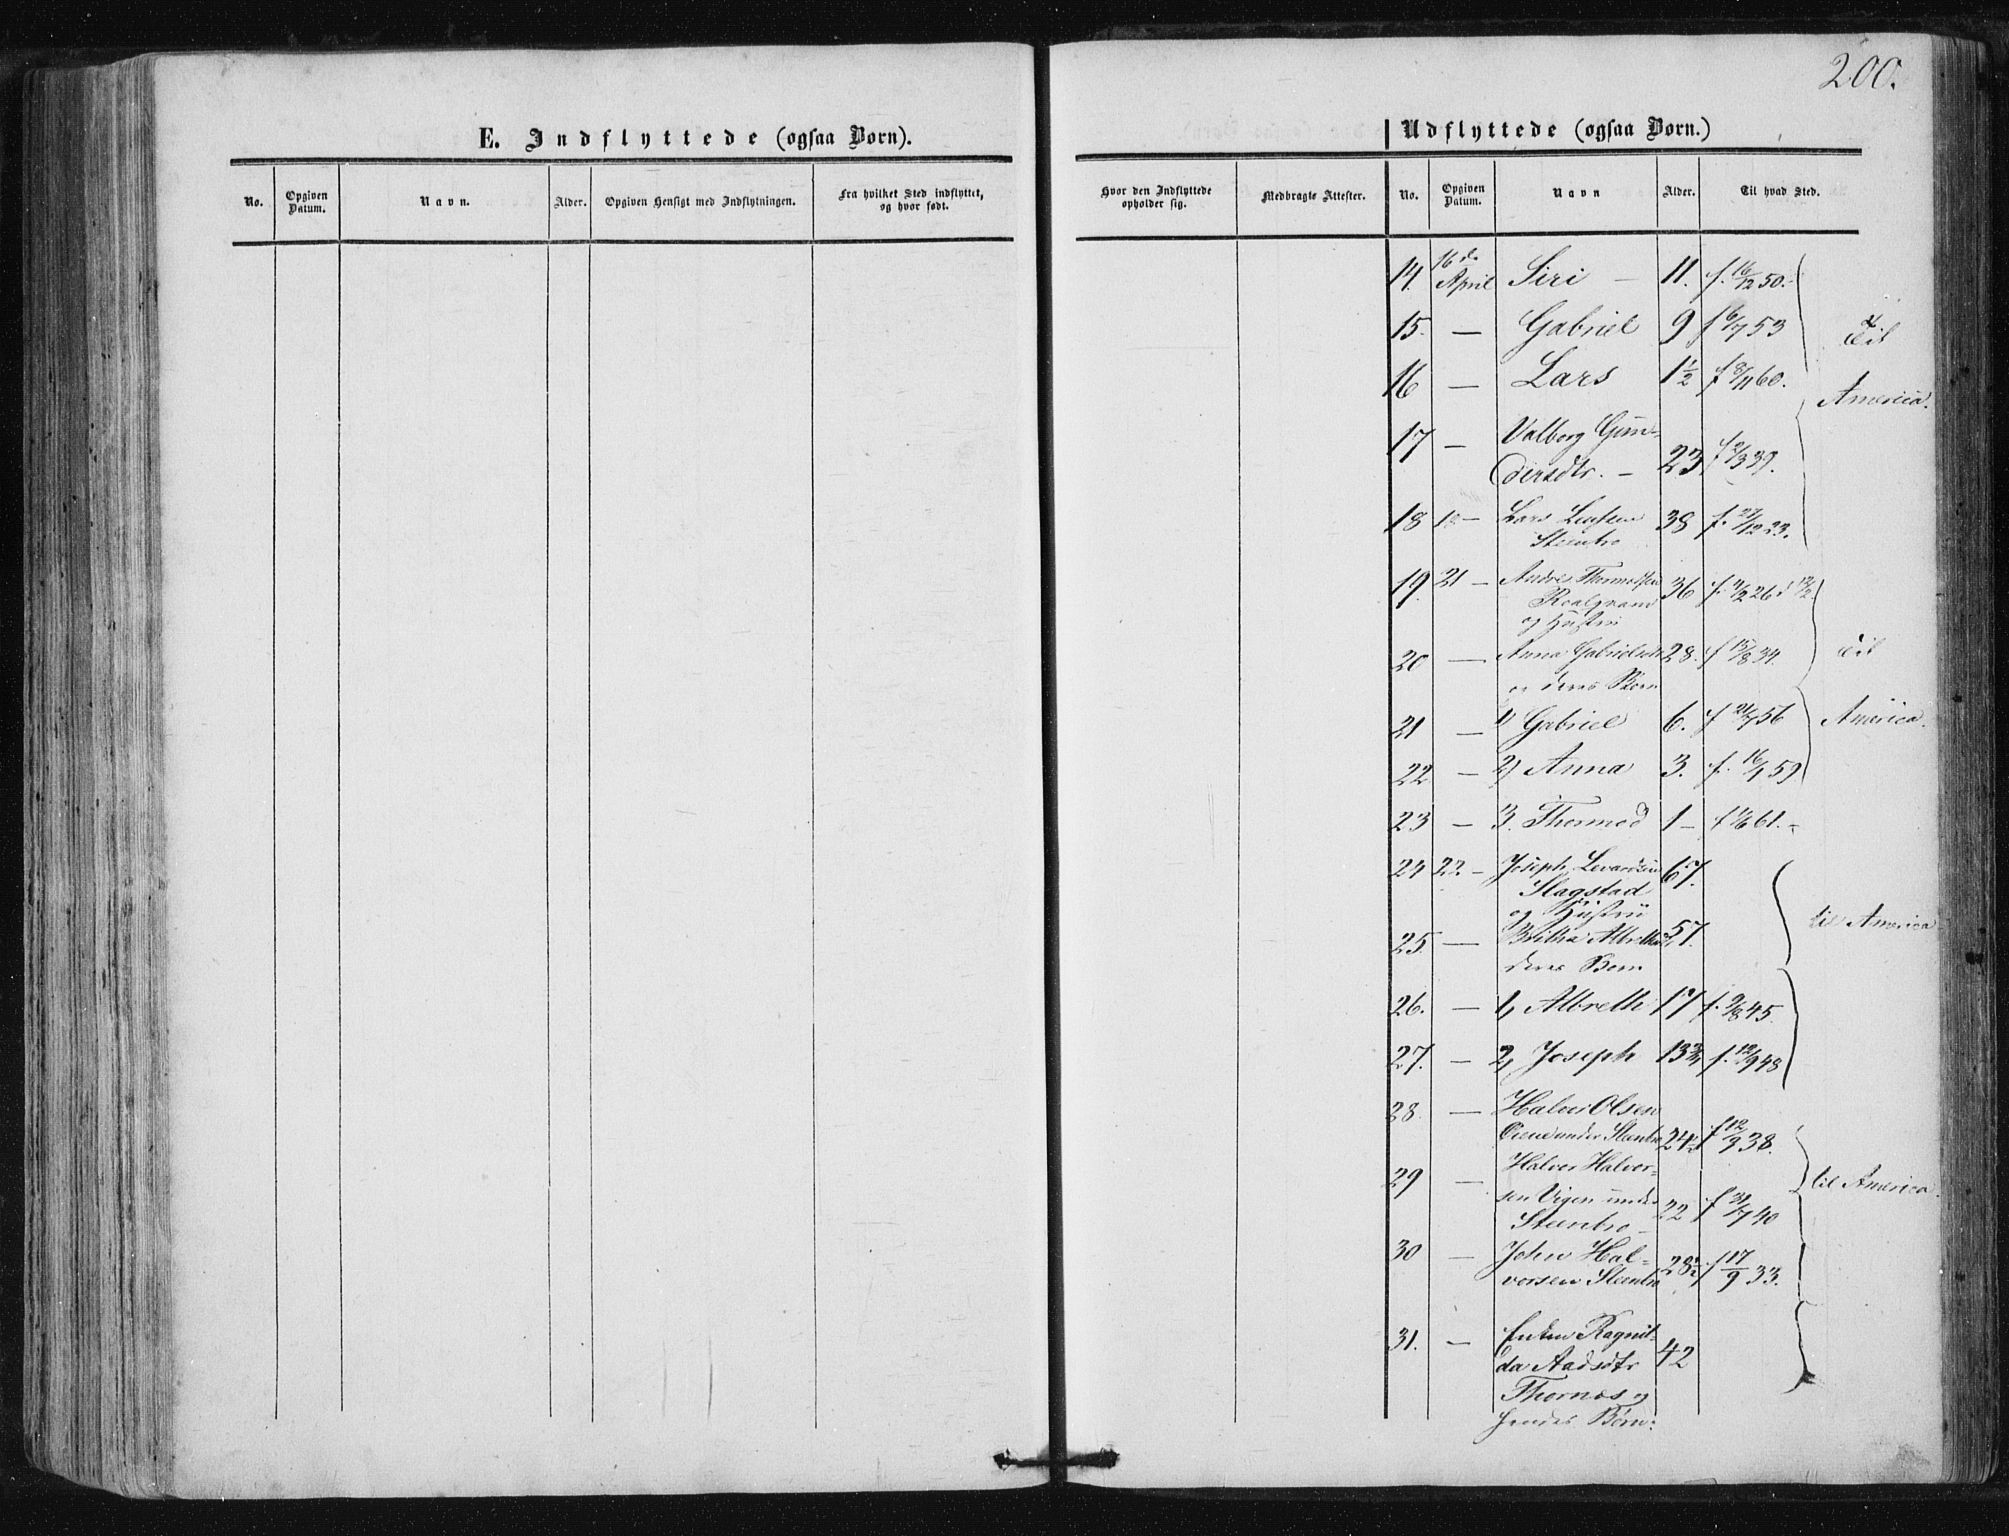 200.
E. Indflyttede (ogsaa Børn).
No. Opgiven Datum. Navn. Alder. Opgiven Hensigt med Indflytningen. Fra hvilket Sted indflyttet, og hvor født.
Udflyttede (ogsaa Børn.)
Hvor den Indflyttede opholder sig. Medbragte Attester. No. Opgiven Datum. Navn Alder. Til hvad Sted.
14. 16de April Siri — 11. f. 16/12 50.
15. — Gabriel 9 f 6/7 53 Til
16 — Lars 1 1/2 f 8/11 60. America.
17 — Valborg Gun-
dersdtr. — 23 f 2/3 39.
18 — Lars
Steenbro 38 f. 27/12 23.
19. 21 — Andres Thormodsen 36
og Hustru
20 — Anna 28. f 15/8 34. Til
og deres Børn
21 — 1) Gabriel 6. f 21/7 56 America.
22 — 2) Anna 3. f. 16/1 59
23 — 3. Thormod 1 —
24 22 — Joseph 67.
Slagstad
og Hustru
25. — 57 til America
deres Børn
26. — 1) Albreth 17 f. 9/8 45.
27. — 2) Joseph 13 3/4 f. 12/9 48
28. — Halvor Olsen
under Steenbro 24 1/2 f 12/9 38.
29 — Halvor Halvor-
sen Vigen under 22 f 31/7 40 til America.
Steenbro —
30 — John Hal-
vorsen Steenbro 28 1/2 f 17/9 33.
31. — Enken Ragnil-
da Aadsdtr 42
Thornæs og
hendes Børn: